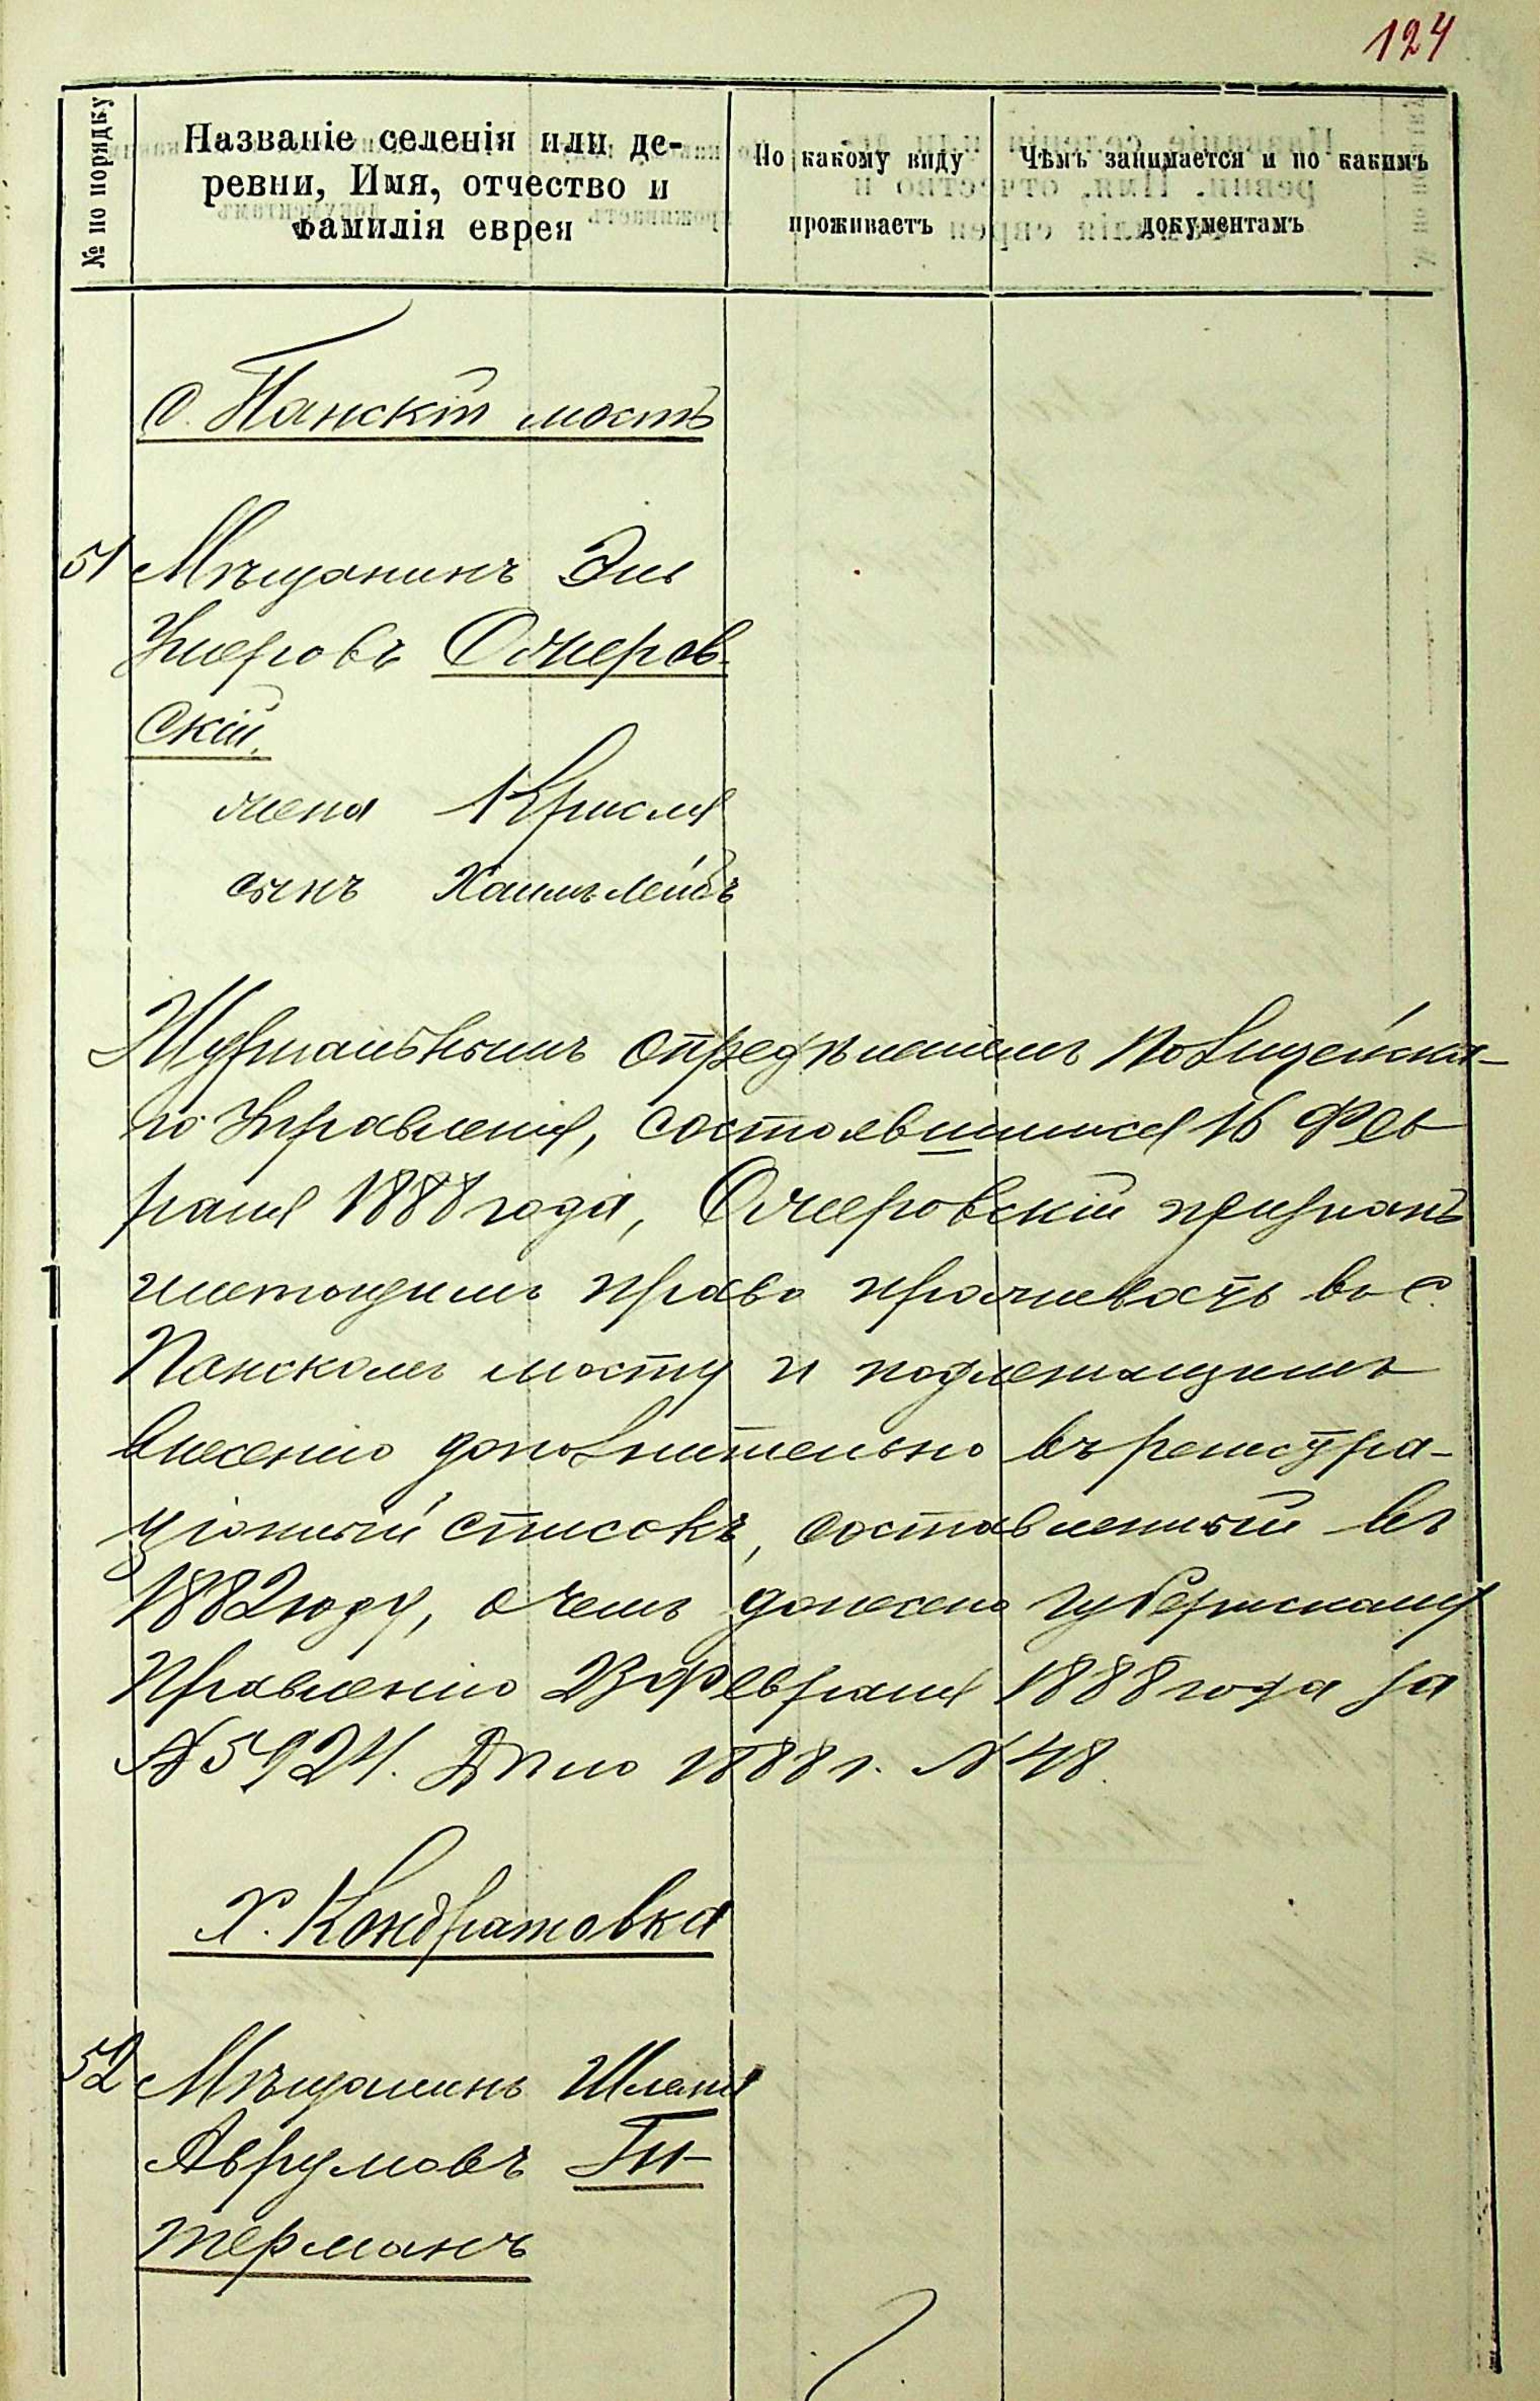 124
№ по порядку
Названіе селенія или де-
ревни, Имя, отчество и
фамилія еврея
По какому виду
проживаетъ
Чѣмъ занимается и по какимъ
документамъ
С. Панскій мостъ
51 Мѣщанинъ Эль
Умеровъ Ожеров-
скій.
жена Крысля
сынъ Хаимъ Лейбъ
Журнальнымъ опредѣленіемъ Полицейска-
го Управленія, состоявшимся 16 Фев
раля 1888 года, Ожеровскій признанъ
имеющимъ право проживать въ с.
Панскомъ мосту и подлежащимъ
внесенію дополнительно въ регистра-
ціонный списокъ, составленный въ
1882 году, о чемъ донесено Губернскому
Правленію 23 Февраля 1888 года за
№ 5924. Дѣло 1888 г. № 48.
Х. Кондратовка
52 Мѣщанинъ Шлема
Аврумовъ Ги-
терманъ